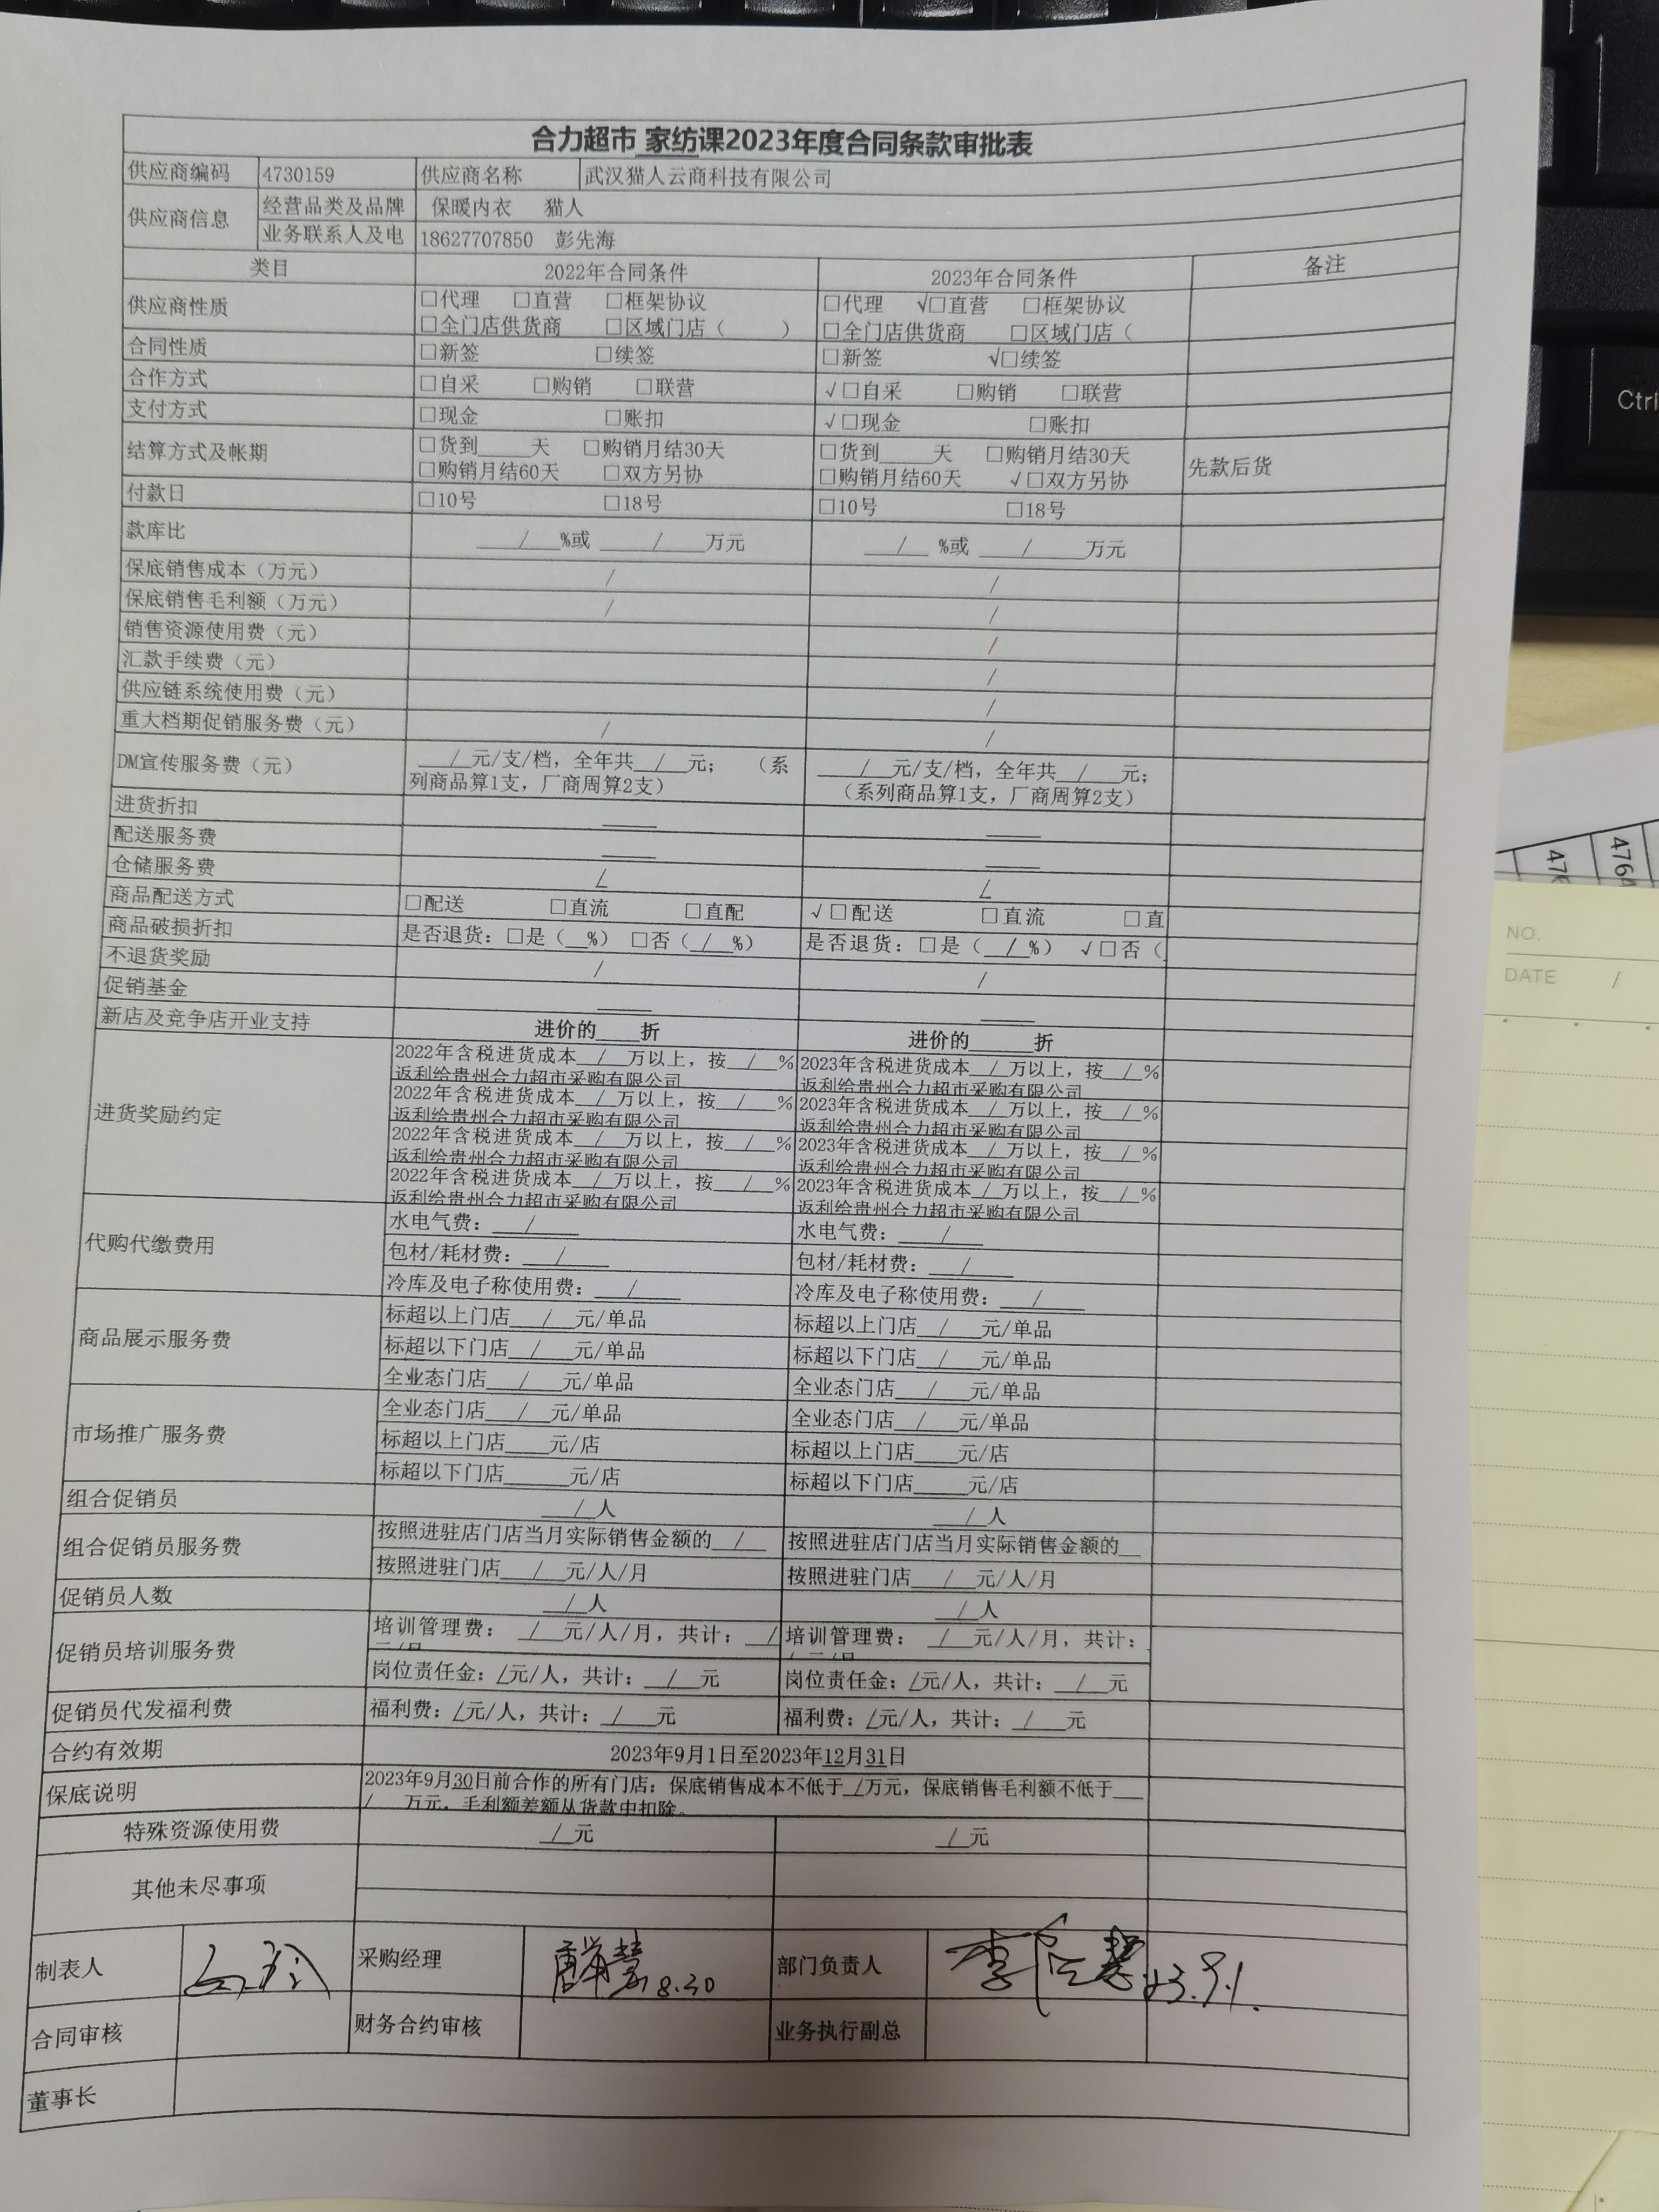 合力超市 家纺课2023年度合同条款审批表
供应商编码 4730159 供应商名称 武汉猫人云商科技有限公司
供应商信息 经营品类及品牌 保暖内衣 猫人
业务联系人及电 18627707850 彭先海
类目 2022年合同条件 2023年合同条件 备注
供应商性质 □代理 □直营 □框架协议 □代理 √□直营 □框架协议
□全门店供货商 □区域门店（ ） □全门店供货商 □区域门店（
合同性质 □新签 □续签 □新签 √□续签
合作方式 □自采 □购销 □联营 √□自采 □购销 □联营
支付方式 □现金 □账扣 √□现金 □账扣
结算方式及帐期 □货到____天 □购销月结30天 □货到____天 □购销月结30天 先款后货
□购销月结60天 □双方另协 □购销月结60天 √□双方另协
付款日 □10号 □18号 □10号 □18号
款库比 __/__%或 __/__万元 __/__%或 __/__万元
保底销售成本（万元） / /
保底销售毛利额（万元） / /
销售资源使用费（元） /
汇款手续费（元） /
供应链系统使用费（元） /
重大档期促销服务费（元） / /
DM宣传服务费（元） __/_元/支/档，全年共__/_元； （系 __/_元/支/档，全年共__/_元；
列商品算1支，厂商周算2支） （系列商品算1支，厂商周算2支）
进货折扣 ____ ____
配送服务费 ____ ____
仓储服务费 / /
商品配送方式 □配送 □直流 □直配 √□配送 □直流 □直
商品破损折扣 是否退货：□是（__%） □否（_/_%） 是否退货：□是（_/_%） √□否（
不退货奖励 / /
促销基金 ____ ____
新店及竞争店开业支持 进价的____折 进价的____折
进货奖励约定 2022年含税进货成本_/_万以上，按_/_% 2023年含税进货成本_/_万以上，按_/_%
返利给贵州合力超市采购有限公司 返利给贵州合力超市采购有限公司
2022年含税进货成本_/_万以上，按_/_% 2023年含税进货成本_/_万以上，按_/_%
返利给贵州合力超市采购有限公司 返利给贵州合力超市采购有限公司
2022年含税进货成本_/_万以上，按_/_% 2023年含税进货成本_/_万以上，按_/_%
返利给贵州合力超市采购有限公司 返利给贵州合力超市采购有限公司
2022年含税进货成本_/_万以上，按_/_% 2023年含税进货成本_/_万以上，按_/_%
返利给贵州合力超市采购有限公司 返利给贵州合力超市采购有限公司
代购代缴费用 水电气费：__/__ 水电气费：__/__
包材/耗材费：__/__ 包材/耗材费：__/__
冷库及电子称使用费：__/__ 冷库及电子称使用费：__/__
商品展示服务费 标超以上门店__/_元/单品 标超以上门店__/_元/单品
标超以下门店__/_元/单品 标超以下门店__/_元/单品
全业态门店__/_元/单品 全业态门店__/_元/单品
市场推广服务费 全业态门店__/_元/单品 全业态门店__/_元/单品
标超以上门店____元/店 标超以上门店____元/店
标超以下门店____元/店 标超以下门店____元/店
组合促销员 _/_人 _/_人
组合促销员服务费 按照进驻店门店当月实际销售金额的_/_ 按照进驻店门店当月实际销售金额的__
按照进驻门店__/_元/人/月 按照进驻门店__/_元/人/月
促销员人数 _/_人 _/_人
促销员培训服务费 培训管理费： _/_元/人/月，共计：_/ 培训管理费： _/_元/人/月，共计：
元/月 元/月
岗位责任金：/元/人，共计：_/_元 岗位责任金：/元/人，共计：_/_元
促销员代发福利费 福利费：/元/人，共计：_/_元 福利费：/元/人，共计：_/_元
合约有效期 2023年9月1日至2023年12月31日
保底说明 2023年9月30日前合作的所有门店；保底销售成本不低于_/万元，保底销售毛利额不低于__
/__万元，毛利额差额从货款中扣除。
特殊资源使用费 _/_元 _/_元
其他未尽事项
制表人 采购经理 8.30 部门负责人 23.9.1.
合同审核 财务合约审核 业务执行副总
董事长
Ctrl
NO.
DATE /